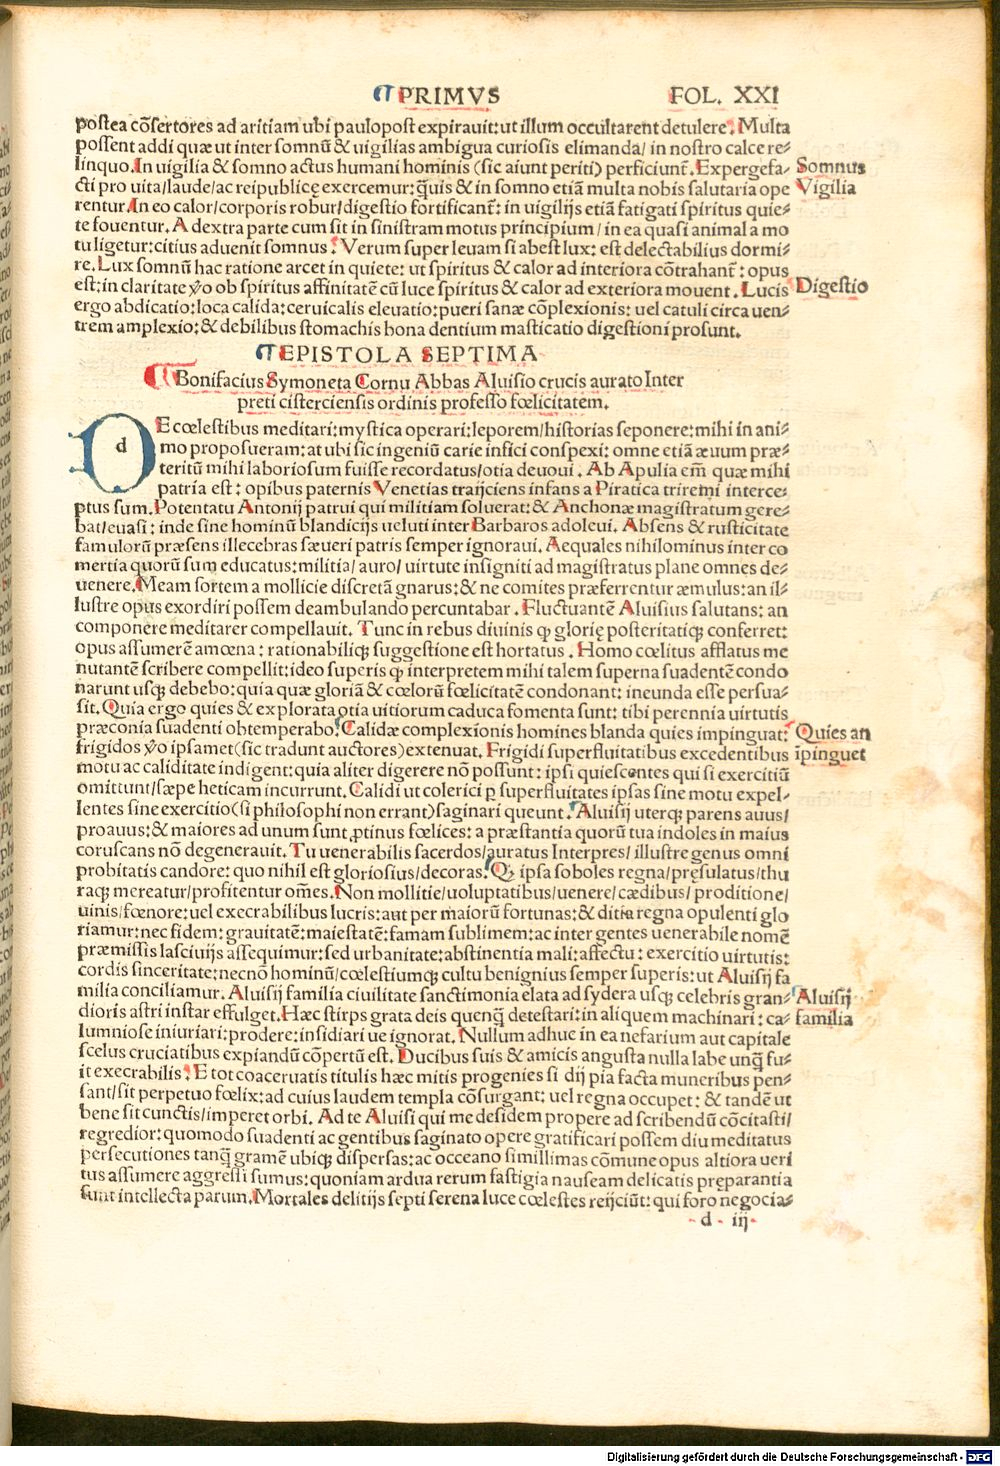 PRIMVS FOL. XXI
postea cõsertores ad aritiam ubi paulopost expirauit: ut illum occultarent detulere. Multa
possent addi quæ ut inter somnũ & uigilias ambigua curiosis elimanda/ in nostro calce re⸗
linquo. In uigilia & somno actus humani hominis (sic aiunt periti) perficiunt̃. Expergefa⸗
cti pro uita/laude/ac reipublicę exercemur: q̃uis & in somno etiã multa nobis salutaria ope
rentur. In eo calor/corporis robur/digestio fortificant̃: in uigilijs etiã fatigati spiritus quie⸗
te fouentur. A dextra parte cum sit in sinistram motus principium/ in ea quasi animal a mo
tu ligetur: citius aduenit somnus. Verum super leuam si abest lux: est delectabilius dormi⸗
re. Lux somnũ hac ratione arcet in quiete: ut spiritus & calor ad interiora cõtrahant̃: opus
est: in claritate ṽo ob spiritus affinitatẽ cũ luce spiritus & calor ad exteriora mouent. Lucis
ergo abdicatio: loca calida: ceruicalis eleuatio: pueri sanæ cõplexionis: uel catuli circa uen⸗
trem amplexio: & debilibus stomachis bona dentium masticatio digestioni prosunt.
Somnus
Vigilia
Digestio
EPISTOLA SEPTIMA
Bonifacius Symoneta Cornu Abbas Aluisio crucis aurato Inter
preti cisterciensis ordinis professo fœlicitatem.
d
E cœlestibus meditari: mystica operari: leporem/historias seponere: mihi in ani⸗
mo proposueram: at ubi sic ingeniũ carie infici conspexi: omne etiã æuum præ⸗
teritũ mihi laboriosum fuisse recordatus/otia deuoui. Ab Apulia em̃ quæ mihi
patria est: opibus paternis Venetias traijciens infans a Piratica triremi interce⸗
ptus sum. Potentatu Antonij patrui qui militiam soluerat: & Anchonæ magistratum gere⸗
bat/euasi: inde sine hominũ blandicijs ueluti inter Barbaros adoleui. Absens & rusticitate
famulorũ præsens illecebras sæueri patris semper ignoraui. Aequales nihilominus inter co
mertia quorũ sum educatus: militia/ auro/ uirtute insigniti ad magistratus plane omnes de⸗
uenere. Meam sortem a mollicie discretã gnarus: & ne comites præferrentur æmulus: an il⸗
lustre opus exordiri possem deambulando percuntabar. Fluctuantẽ Aluisius salutans: an
componere meditarer compellauit. Tunc in rebus diuinis q̃ glorię posteritatiq; conferret:
opus assumerẽ amœna: rationabiliq; suggestione est hortatus. Homo cœlitus afflatus me
nutantẽ scribere compellit: ideo superis q̃ interpretem mihi talem superna suadentẽ condo
narunt usq; debebo: quia quæ gloriã & cœlorũ fœlicitatẽ condonant: ineunda esse persua⸗
sit. Quia ergo quies & explorata otia uitiorum caduca fomenta sunt: tibi perennia uirtutis
præconia suadenti obtemperabo. Calidæ complexionis homines blanda quies impinguat:
frigidos ṽo ipsamet (sic tradunt auctores) extenuat. Frigidi superfluitatibus excedentibus
motu ac caliditate indigent: quia aliter digerere nõ possunt: ipsi quiescentes qui si exercitiũ
omittunt/sæpe heticam incurrunt. Calidi ut colerici ꝑ superfluitates ipsas sine motu expel⸗
lentes sine exercitio (si philosophi non errant) saginari queunt. Aluisij uterq; parens auus/
proauus: & maiores ad unum sunt ꝓtinus fœlices: a præstantia quorũ tua indoles in maius
coruscans nõ degenerauit. Tu uenerabilis sacerdos/auratus Interpres/ illustre genus omni
probitatis candore: quo nihil est gloriosius/decoras. Q; ipsa soboles regna/pręsulatus/thu
raq; mereatur/profitentur om̃es. Non mollitie/uoluptatibus/uenere/cædibus/ proditione/
uinis/fœnore: uel execrabilibus lucris: aut per maiorũ fortunas: & ditia regna opulenti glo
riamur: nec fidem: grauitatẽ: maiestatẽ: famam sublimem: ac inter gentes uenerabile nomẽ
præmissis lasciuijs assequimur: sed urbanitate: abstinentia mali: affectu: exercitio uirtutis:
cordis sinceritate: necnõ hominũ/cœlestiumq; cultu benignius semper superis: ut Aluisij fa
milia conciliamur. Aluisij familia ciuilitate sanctimonia elata ad sydera usq; celebris gran⸗
dioris astri instar effulget. Hæc stirps grata deis quenq̃ detestari: in aliquem machinari: ca⸗
lumniose iniuriari: prodere: insidiari ue ignorat. Nullum adhuc in ea nefarium aut capitale
scelus cruciatibus expiandũ cõpertũ est. Ducibus suis & amicis angusta nulla labe unq̃ fu⸗
it execrabilis. E tot coaceruatis titulis hæc mitis progenies si dij pia facta muneribus pen⸗
sant/sit perpetuo fœlix: ad cuius laudem templa cõsurgant: uel regna occupet: & tandẽ ut
bene sit cunctis/imperet orbi. Ad te Aluisi qui me desidem propere ad scribendũ cõcitasti/
regredior: quomodo suadenti ac gentibus saginato opere gratificari possem diu meditatus
persecutiones tanq̃ gramẽ ubiq; dispersas: ac occeano simillimas cõmune opus altiora ueri
tus assumere aggressi sumus: quoniam ardua rerum fastigia nauseam delicatis pręparantia
sunt intellecta parum. Mortales delitijs septi serena luce cœlestes reijciũt: qui foro negocia⸗
Quies an
ĩpinguet
Aluisij
familia
d iij
Digitalisierung gefördert durch die Deutsche Forschungsgemeinschaft - DFG